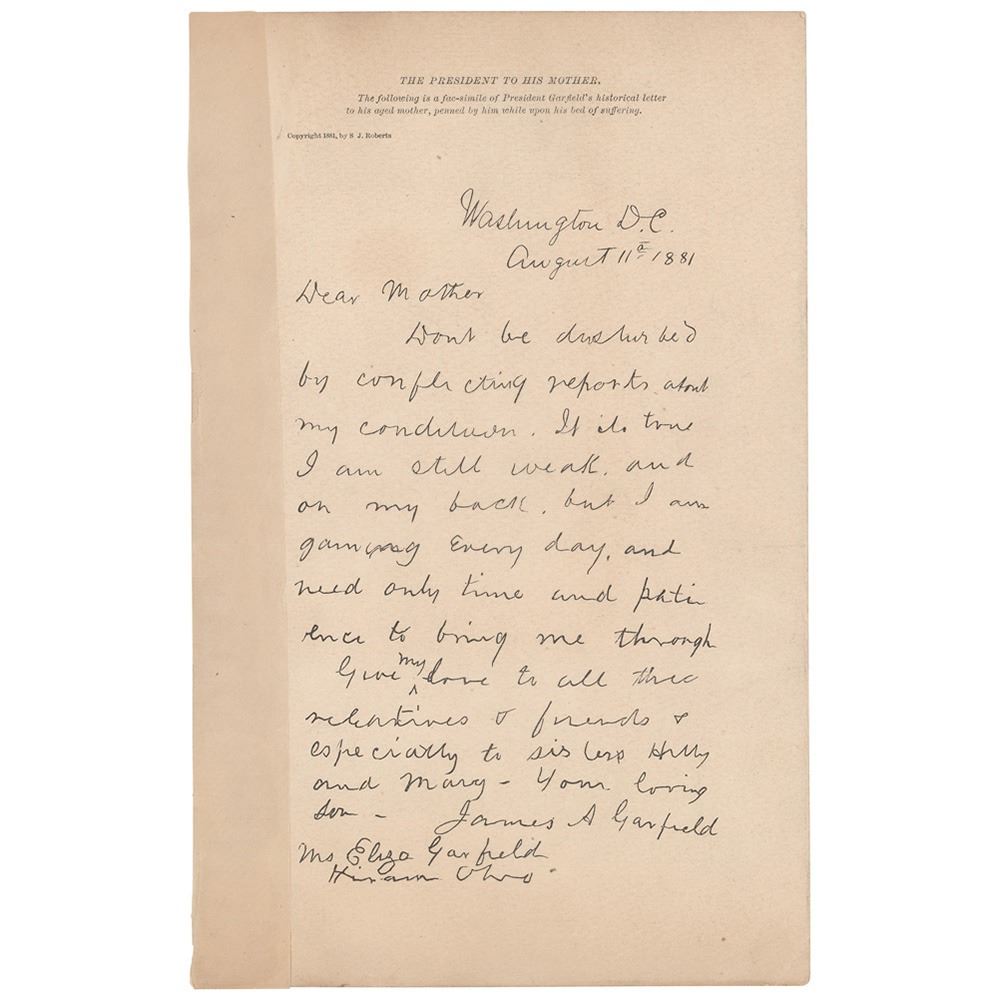 THE PRESIDENT TO HIS MOTHER.
The following is a fac-simile of President Garfield's historical letter
to his aged mother, penned by him while upon his bed of suffering.
Copyright 1881, by S J. Roberts
Washington D.C.
August 11th 1881
Dear Mother
Dont be disturbed
by conflicting reports about
my condition. It is true
I am still weak, and
on my back, but I am
gaining every day, and
need only time and pati
ence to bring me through
Give my love to all the
relatives & friends &
especially to sisters Hitty
and Mary - Your loving
son - James A Garfield
Mrs Eliza Garfield
Hiram Ohio